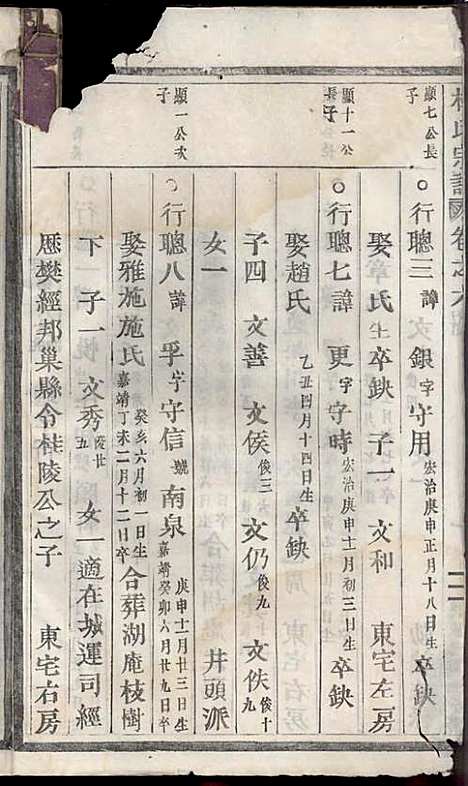 氏宗譜 卷之
顯七公長子
○行聰三 諱銀 字守用 宏治庚申正月十八日生 卒缺
娶章氏 生卒缺 子一 文和 東宅左房
顯十一公長子
○行聰七 諱更 字守時 宏治庚申十二月初三日生 卒缺
娶趙氏 乙丑四月十四日生 卒缺
子四 文善 文侯 俊三 文仍 俊九 文佚 俊十九
女一 井頭派
顯一公次子
○行聰八 諱孚 字守信 號南泉 庚申十二月廿三日生 嘉靖癸卯六月廿九日卒
娶雅施施氏 癸亥六月初一日生 嘉靖丁未二月十二日卒 合葬湖庵枝樹
下 子一 文秀 陵廿五 女一 適在城運司經
歷樊經邦巢縣令桂陵公之子 東宅右房